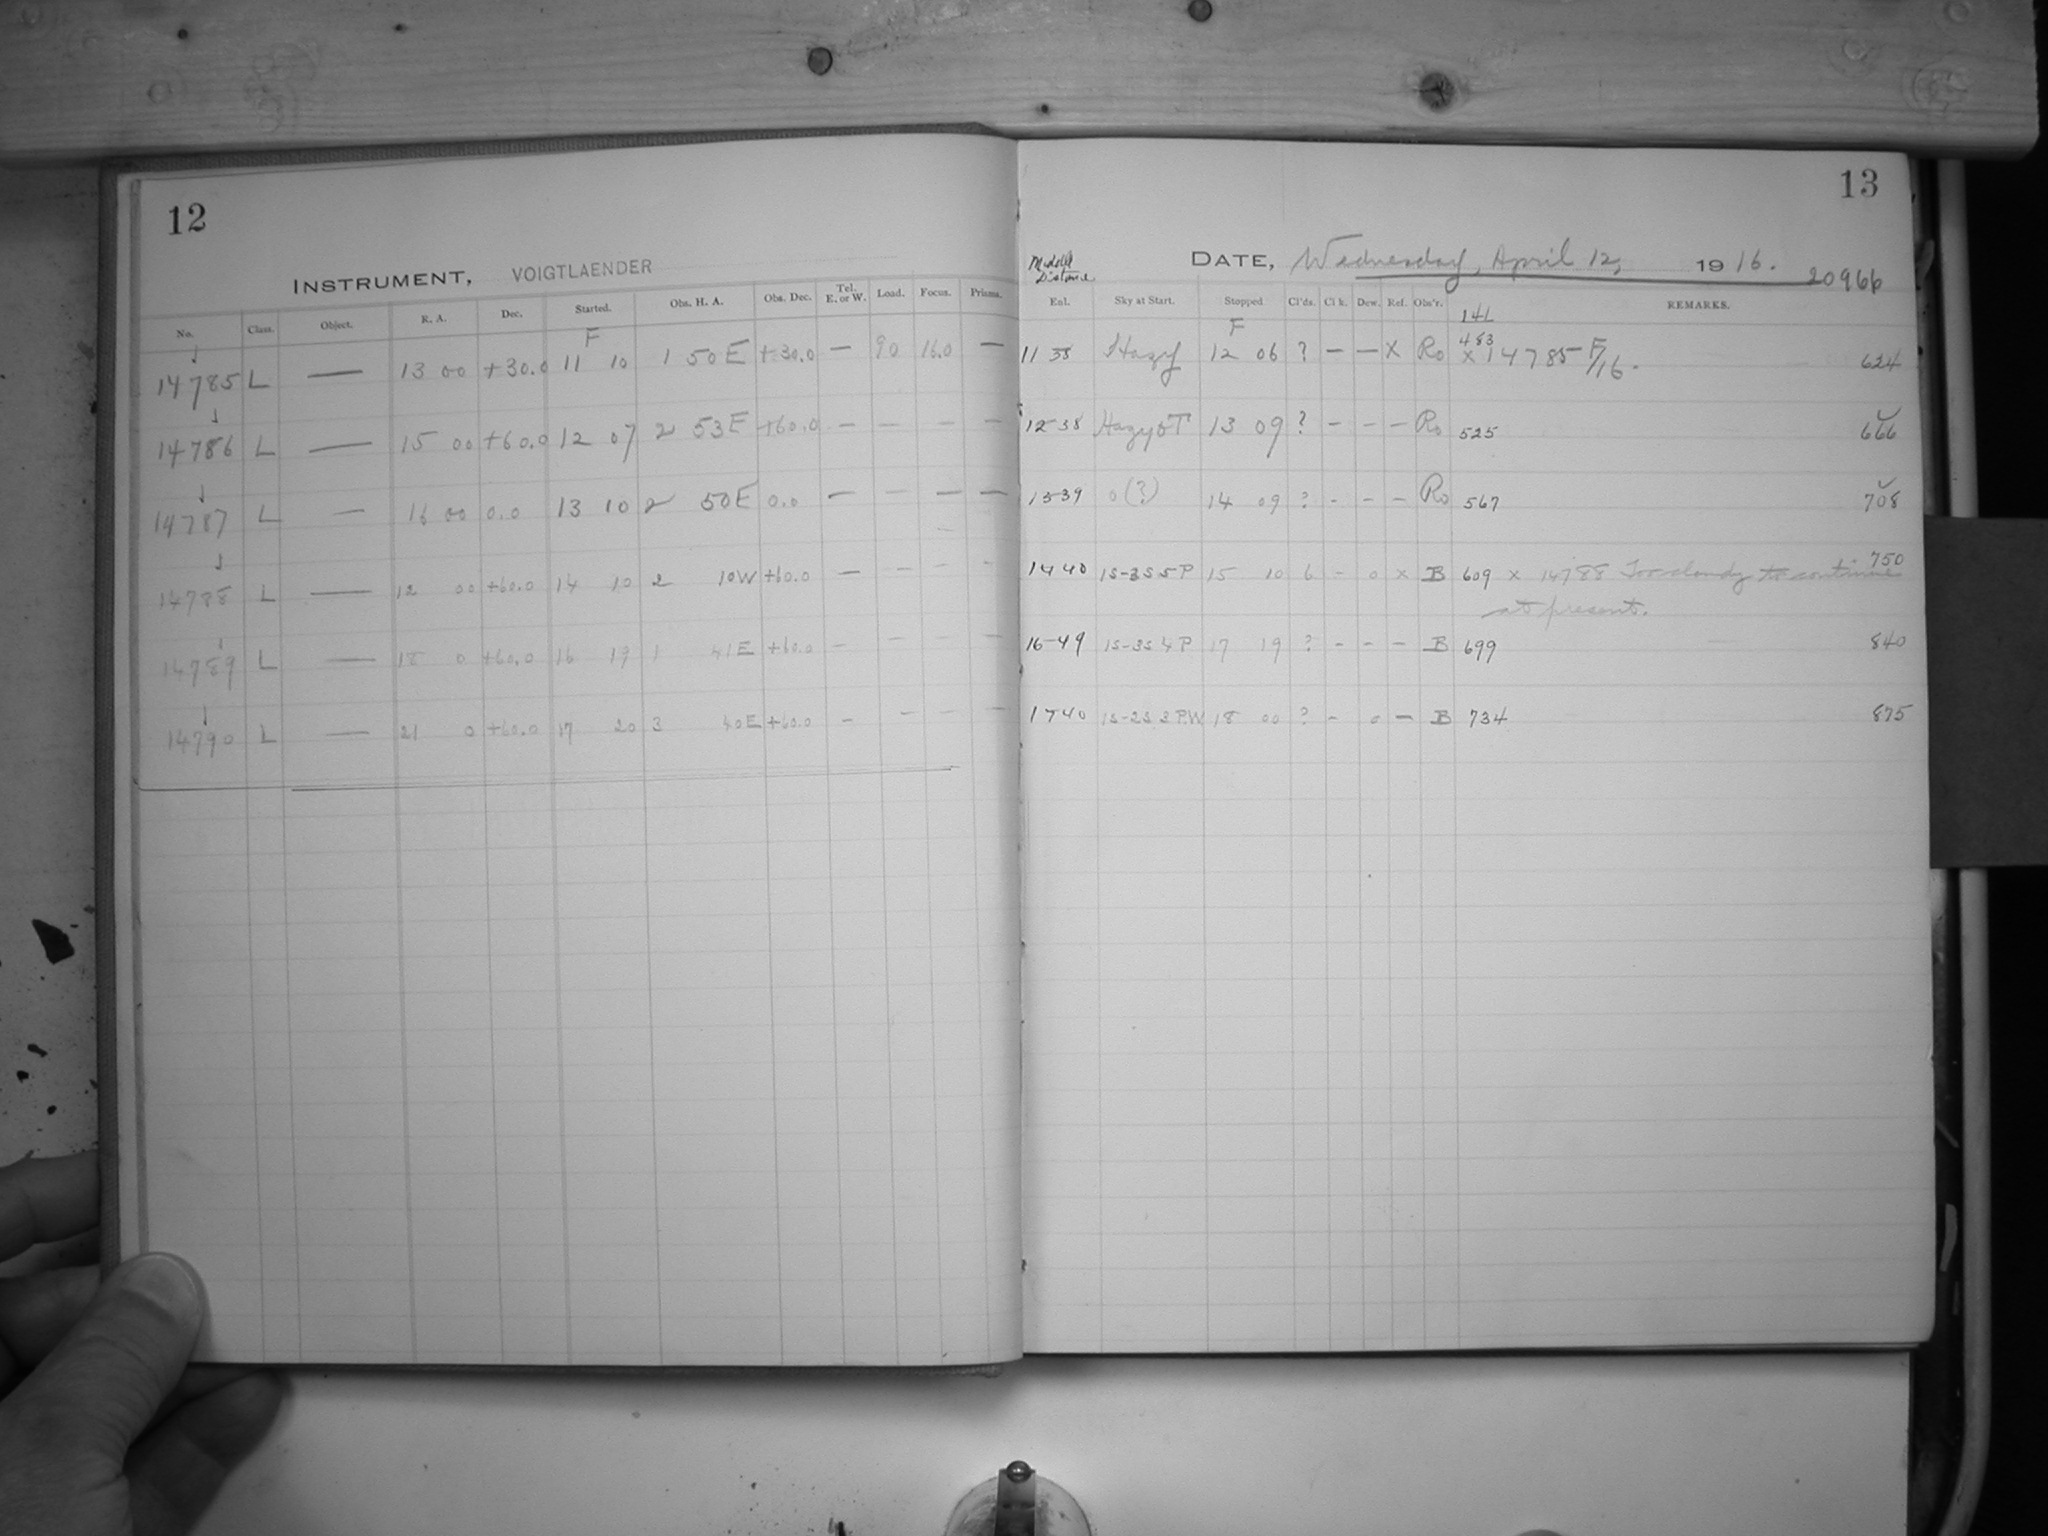 12
INSTRUMENT, VOIGTLAENDER
No. Class. Object. R. A. Dec. Started. Obs. H. A. Obs. Dec. Tel. E. or W. Load. Focus. Prisms.
F
14785 L — 13 00 +30.0 11 10 1 50 E +30.0 — 90 16.0 —
14786 L — 15 00 +60.0 12 07 2 53 E +60.0 — — — —
14787 L — 16 00 0.0 13 10 2 50 E 0.0 — — — —
14788 L — 12 00 +60.0 14 10 2 10 W +60.0 — - - -
14789 L — 18 0 +60.0 16 19 1 41 E +60.0 — - - -
14790 L — 21 0 +60.0 17 20 3 40 E +60.0 — - - -
13
Middle Distance
DATE, Wednesday, April 12, 1916.
20966
Enl. Sky at Start. Stopped Cl'ds. Cl k. Dew. Ref. Obs'r. REMARKS.
141
F
483
11 38 Hazy 12 06 ? — — X Ro x 14785 F/16. 624
12 38 13 09 ? - - - Ro 525 666
13 39 0 (?) 14 09 ? - - - Ro 567 708
14 40 1S-3S 5 P 15 10 6 - 0 x B 609 x 14788 Too cloudy to continue 750
at present.
16 49 1S-3S 4 P 17 19 ? - - - B 699 840
17 40 1S-2S 3 P.W 18 00 ? - 0 - B 734 875